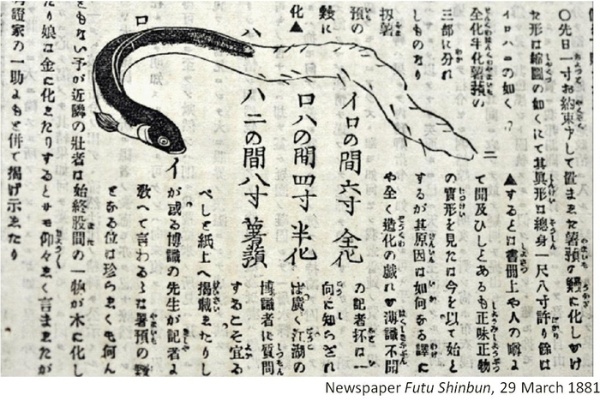 ○先日一寸お約束申して置ました薯蕷の鰻に化しかけ
た形は縮圖の如くにて其眞形は總身一尺八寸許り餘は
イロハニの如く
全化半化薯蕷の
三部に分れ
しものなり
扨薯
預の
鰻に
化▲
▲するとは書冊上や人の噂よ
て聞及びしとあるも正味正物
の實形を見たは今を以て始と
するが其原因は如何なる譯に
や全く造化の戯れか薄識不聞
の記者抔は一
向に知らざれ
ば廣く江湖の
博識者に質問
することそ宜る
べしと紙上へ掲載ましたりし
が或る博識の先生が記者よ
歌へて言わるゝは薯預の鰻
となる位は珍らしくも何ん
ともない予が近隣の壯者は始終股間の一物が木に化し
たり娘は金に化したりするとサモ仰々しく言ましたが
證家の一助よもと併て掲げ示したり
イ
ロ
ハ
ニ
イロの間六寸 全化
ロハの間四寸 半化
ハニの間八寸 薯蕷
Newspaper Futu Shinbun, 29 March 1881